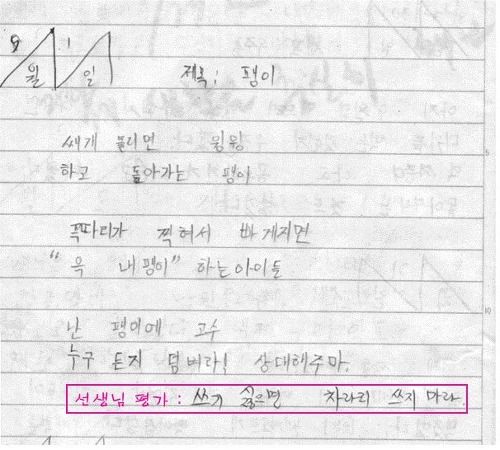 9월 1일
제목; 팽이
쌔게 돌리면 윙윙
하고 돌아가는 팽이
꼭따리가 찍혀서 빠게지면
“윽 내팽이” 하는아이들
난 팽이에 고수
누구 든지 덤벼라! 상대해주마.
선생님 평가 : 쓰기 싫으면 차라리 쓰지 마라.